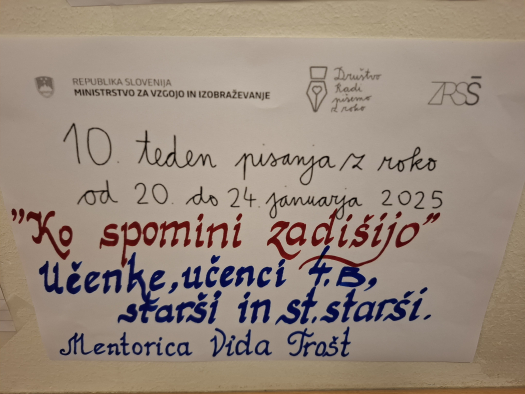 REPUBLIKA SLOVENIJA
MINISTRSTVO ZA VZGOJO IN IZOBRAŽEVANJE
Društvo
Radi
pišemo
z roko
ZRSŠ
10. teden pisanja z roko
od 20. do 24. januarja 2025
"Ko spomini zadišijo"
Učenke, učenci 4. B,
starši in st. starši.
Mentorica Vida Trošt